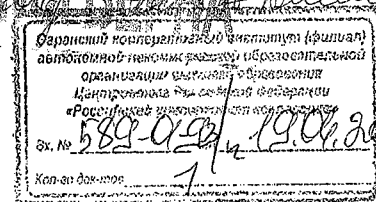 Саранский кооперативный институт (филиал)
автономной некоммерческой образовательной
организации высшего образования
Центросоюза Российской Федерации
«Российский университет кооперации»
Вх. № 589-01 19.06.20
Кол-во док-тов 1